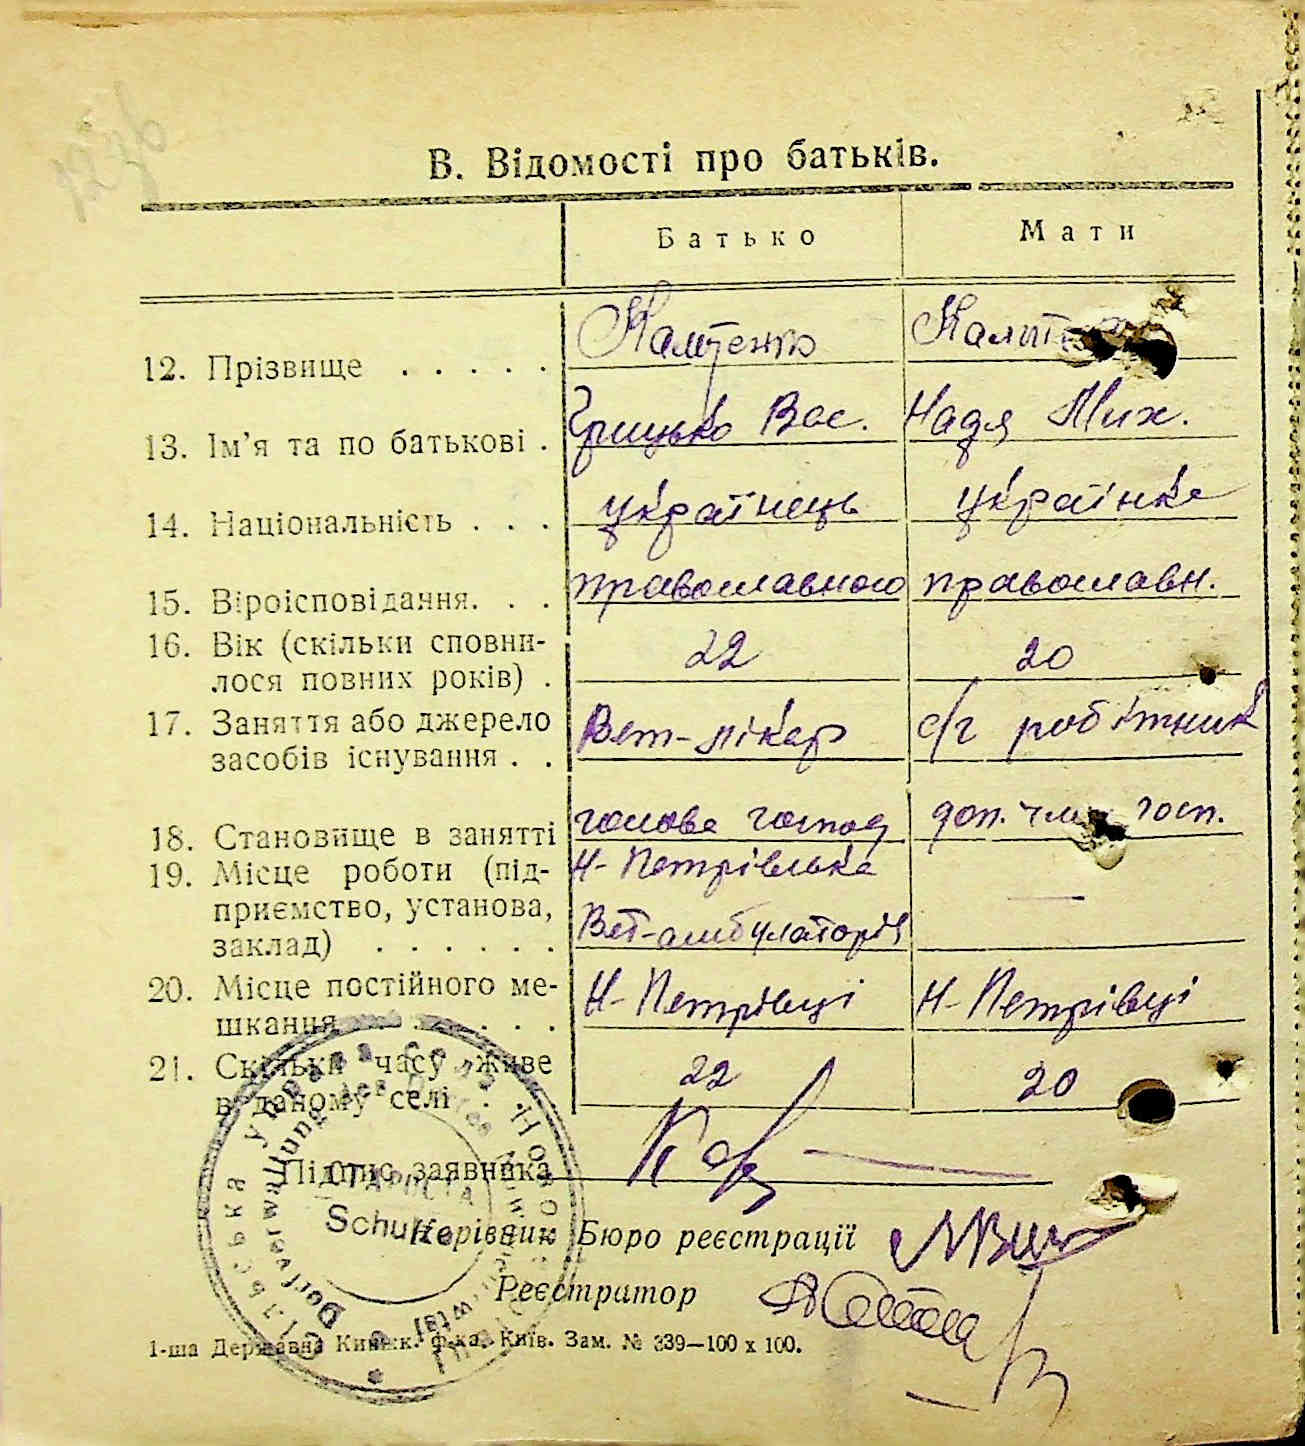 В. Відомості про батьків.
Батько Мати
12. Прізвище . . . . .
13. Ім'я та по батькові . Грицько Вас. Надя Мих.
14. Національність . . . українець українка
15. Віроісповідання. . . православного православн.
16. Вік (скільки сповни-
лося повних років) . 22 20
17. Заняття або джерело
засобів існування . . Вет-лікар с/г робітник
18. Становище в занятті голова господ доп. член госп.
19. Місце роботи (під- Н-Петрівська
приємство, установа,
заклад) . . . . . . Вет-амбулаторія —
20. Місце постійного ме-
шкання . . . . . . Н-Петрівці Н-Петрівці
21. Скільки часу живе
в даному селі . . 22 20
Підпис заявника
СТАРОСТА
Schulze
Керівник Бюро реєстрації
Реєстратор
1-ша Державна Книжк. ф-ка. Київ. Зам. № 339—100 х 100.
Сільська управа села
Dorfverwaltung des Dorfes